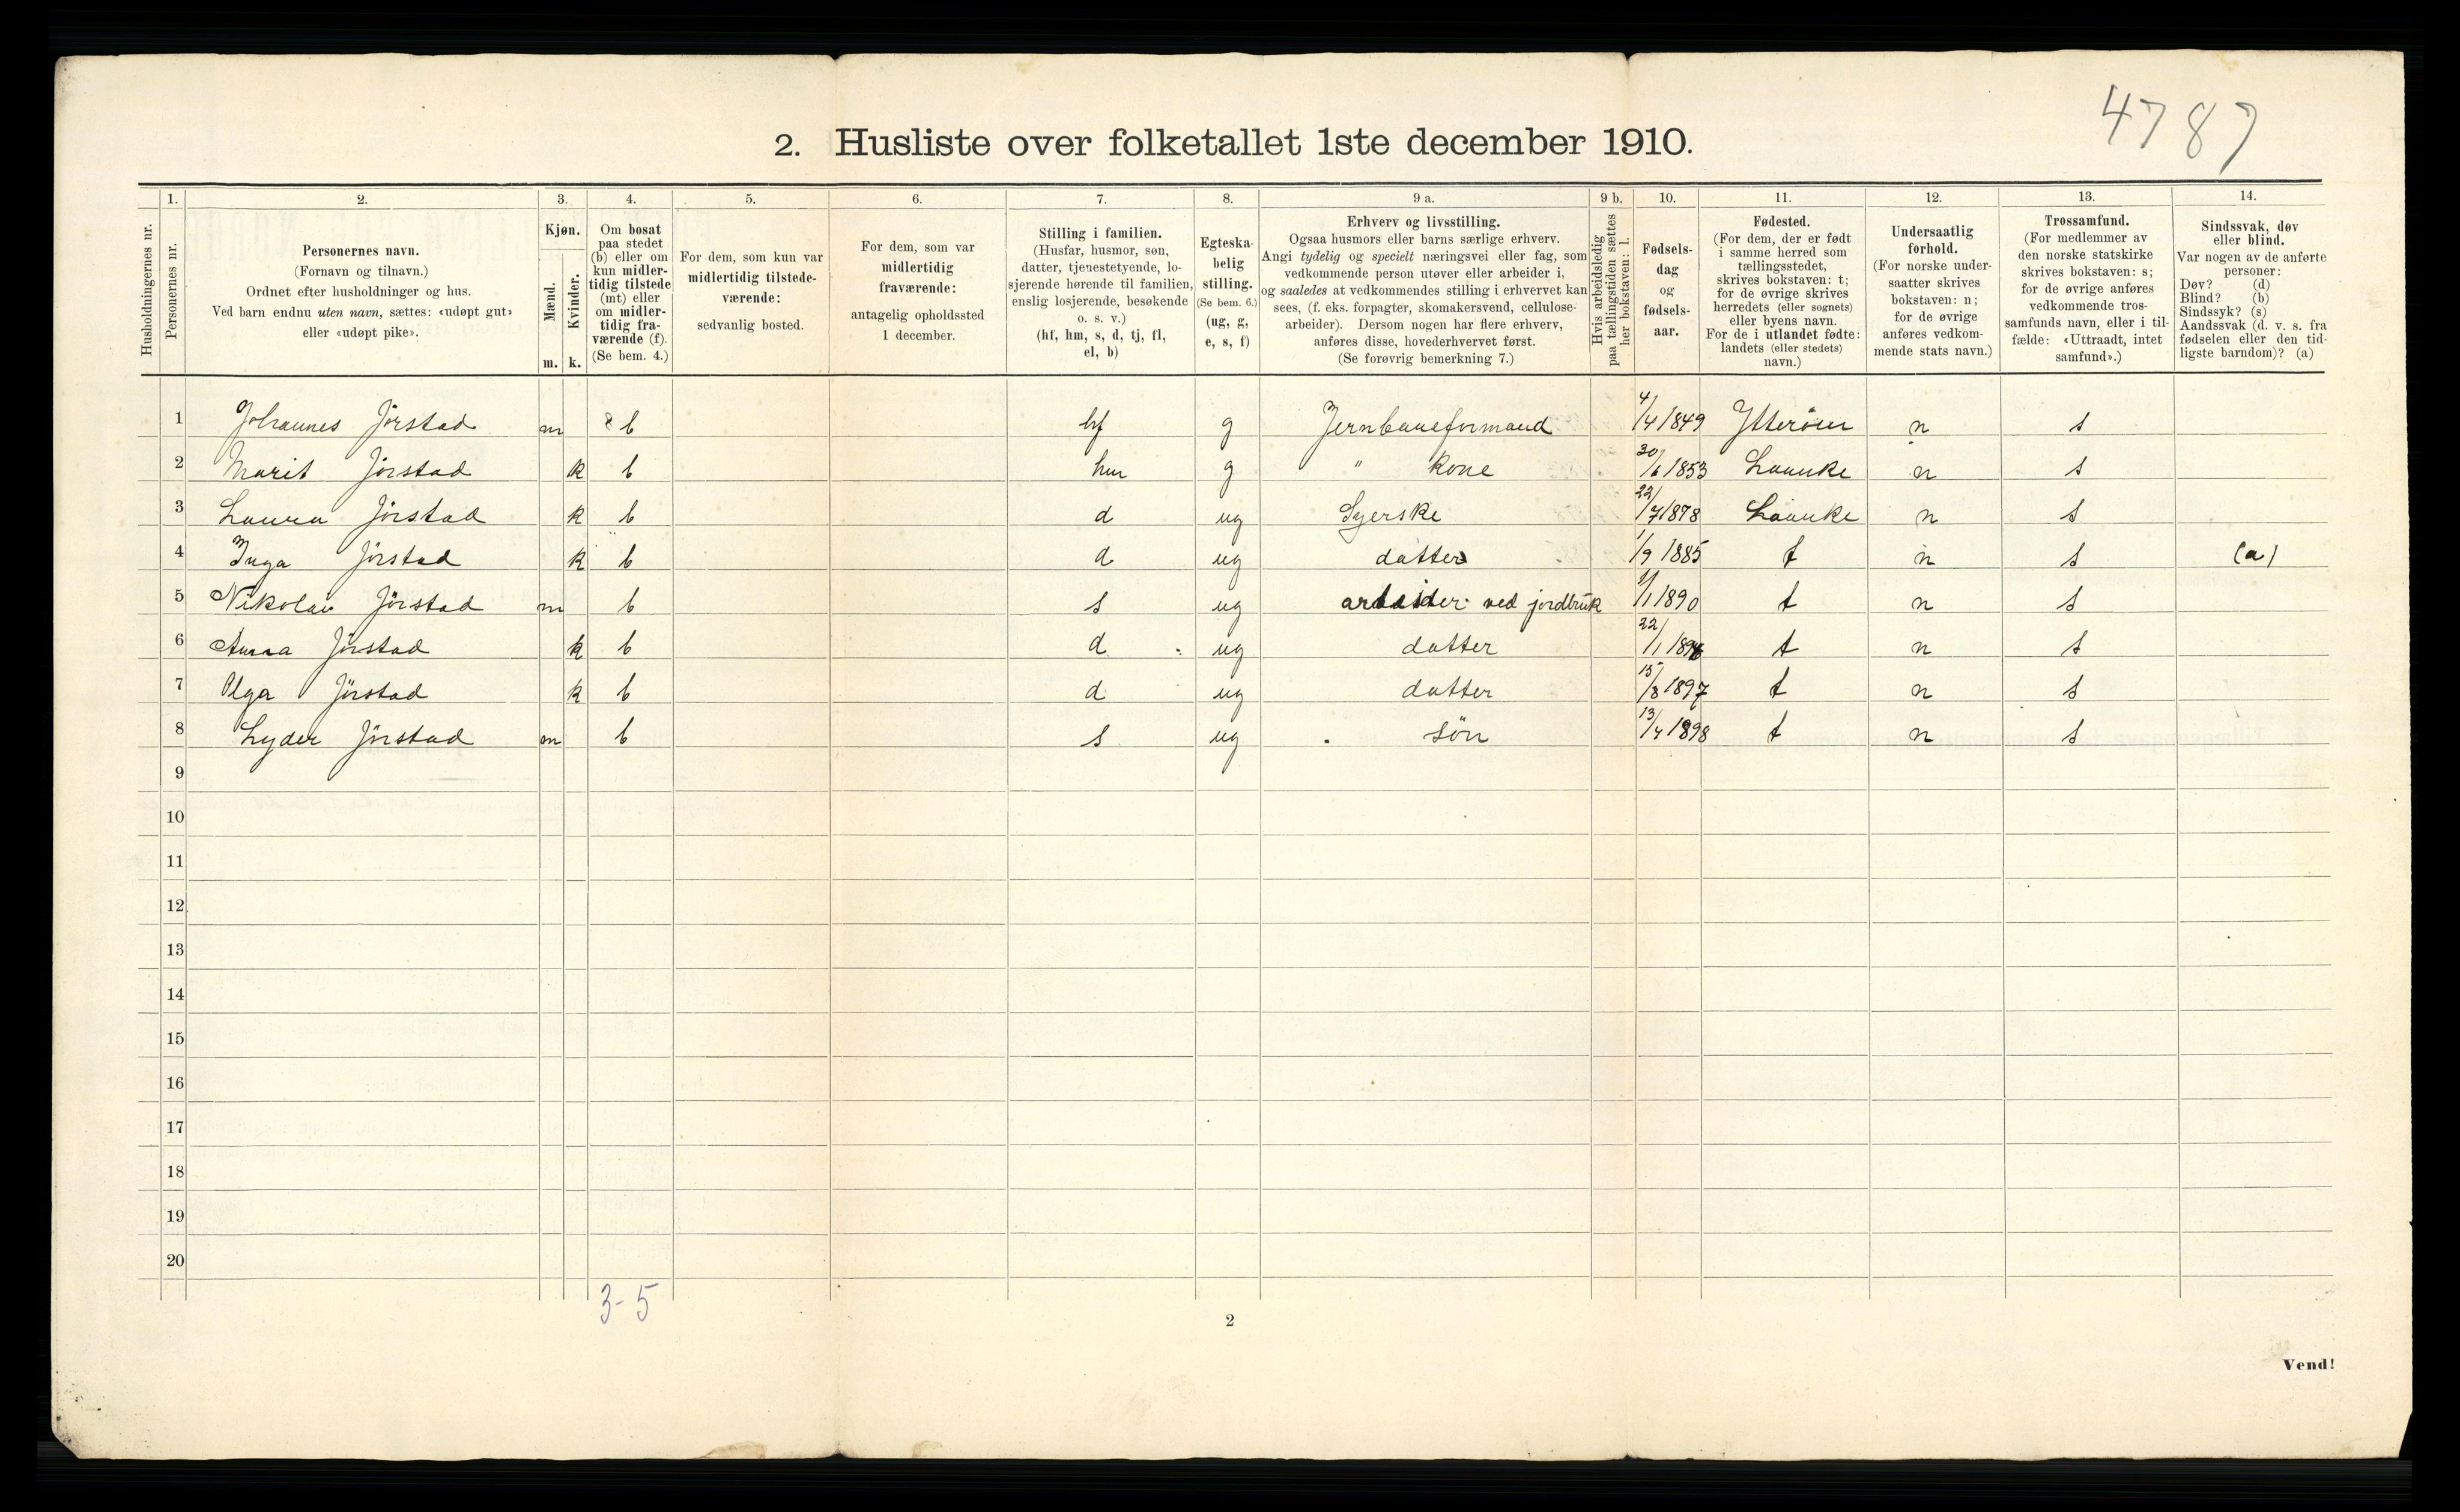 4787
2. Husliste over folketallet 1ste december 1910.
Husholdningernes nr.
1.
Personernes nr.
2.
Personernes navn.
(Fornavn og tilnavn.)
Ordnet efter husholdninger og hus.
Ved barn endnu uten navn, sættes: «udøpt gut»
eller «udøpt pike».
3.
Kjøn.
Mænd.
Kvinder.
m. k.
4.
Om bosat
paa stedet
(b) eller om
kun midler-
tidig tilstede
(mt) eller
om midler-
tidig fra-
værende (f).
(Se bem. 4.)
5.
For dem, som kun var
midlertidig tilstede-
værende:
sedvanlig bosted.
6.
For dem, som var
midlertidig
fraværende:
antagelig opholdssted
1 december.
7.
Stilling i familien.
(Husfar, husmor, søn,
datter, tjenestetyende, lo-
sjerende hørende til familien,
enslig losjerende, besøkende
o. s. v.)
(hf, hm, s, d, tj, fl,
el, b)
8.
Egteska-
belig
stilling.
(Se bem. 6.)
(ug, g,
e, s, f)
9 a.
Erhverv og livsstilling.
Ogsaa husmors eller barns særlige erhverv.
Angi tydelig og specielt næringsvei eller fag, som
vedkommende person utøver eller arbeider i,
og saaledes at vedkommendes stilling i erhvervet kan
sees, (f. eks. forpagter, skomakersvend, cellulose-
arbeider). Dersom nogen har flere erhverv,
anføres disse, hovederhvervet først.
(Se forøvrig bemerkning 7.)
9 b.
Hvis arbeidsledig
paa tællingstiden sættes
her bokstaven: l.
10.
Fødsels-
dag
og
fødsels-
aar.
11.
Fødested.
(For dem, der er født
i samme herred som
tællingsstedet,
skrives bokstaven: t;
for de øvrige skrives
herredets (eller sognets)
eller byens navn.
For de i utlandet fødte:
landets (eller stedets)
navn.)
12.
Undersaatlig
forhold.
(For norske under-
saatter skrives
bokstaven: n;
for de øvrige
anføres vedkom-
mende stats navn.)
13.
Trossamfund.
(For medlemmer av
den norske statskirke
skrives bokstaven: s;
for de øvrige anføres
vedkommende tros-
samfunds navn, eller i til-
fælde: «Uttraadt, intet
samfund».)
14.
Sindssvak, døv
eller blind.
Var nogen av de anførte
personer:
Døv? (d)
Blind? (b)
Sindssyk? (s)
Aandssvak (d. v. s. fra
fødselen eller den tid-
ligste barndom)? (a)
1 Johannes Jørstad m b hf g Jernbaneformand 4/4 1849 Ytterøen n s
2 Marit Jørstad k b hm g " kone 30/6 1853 Laanke n s
3 Laura Jørstad k b d ug Syerske 22/7 1878 Laanke n s
4 Inga Jørstad k b d ug datter 1/9 1885 t n s (a)
5 Nikolai Jørstad m b s ug arbeider ved jordbruk 1/1 1890 t n s
6 Anna Jørstad k b d ug datter 22/1 t n s
7 Olga Jørstad k b d ug datter 15/8 1897 t n s
8 Lyder Jørstad m b s ug søn 13/4 1898 t n s
9
10
11
12
13
14
15
16
17
18
19
20
3-5
2
Vend!